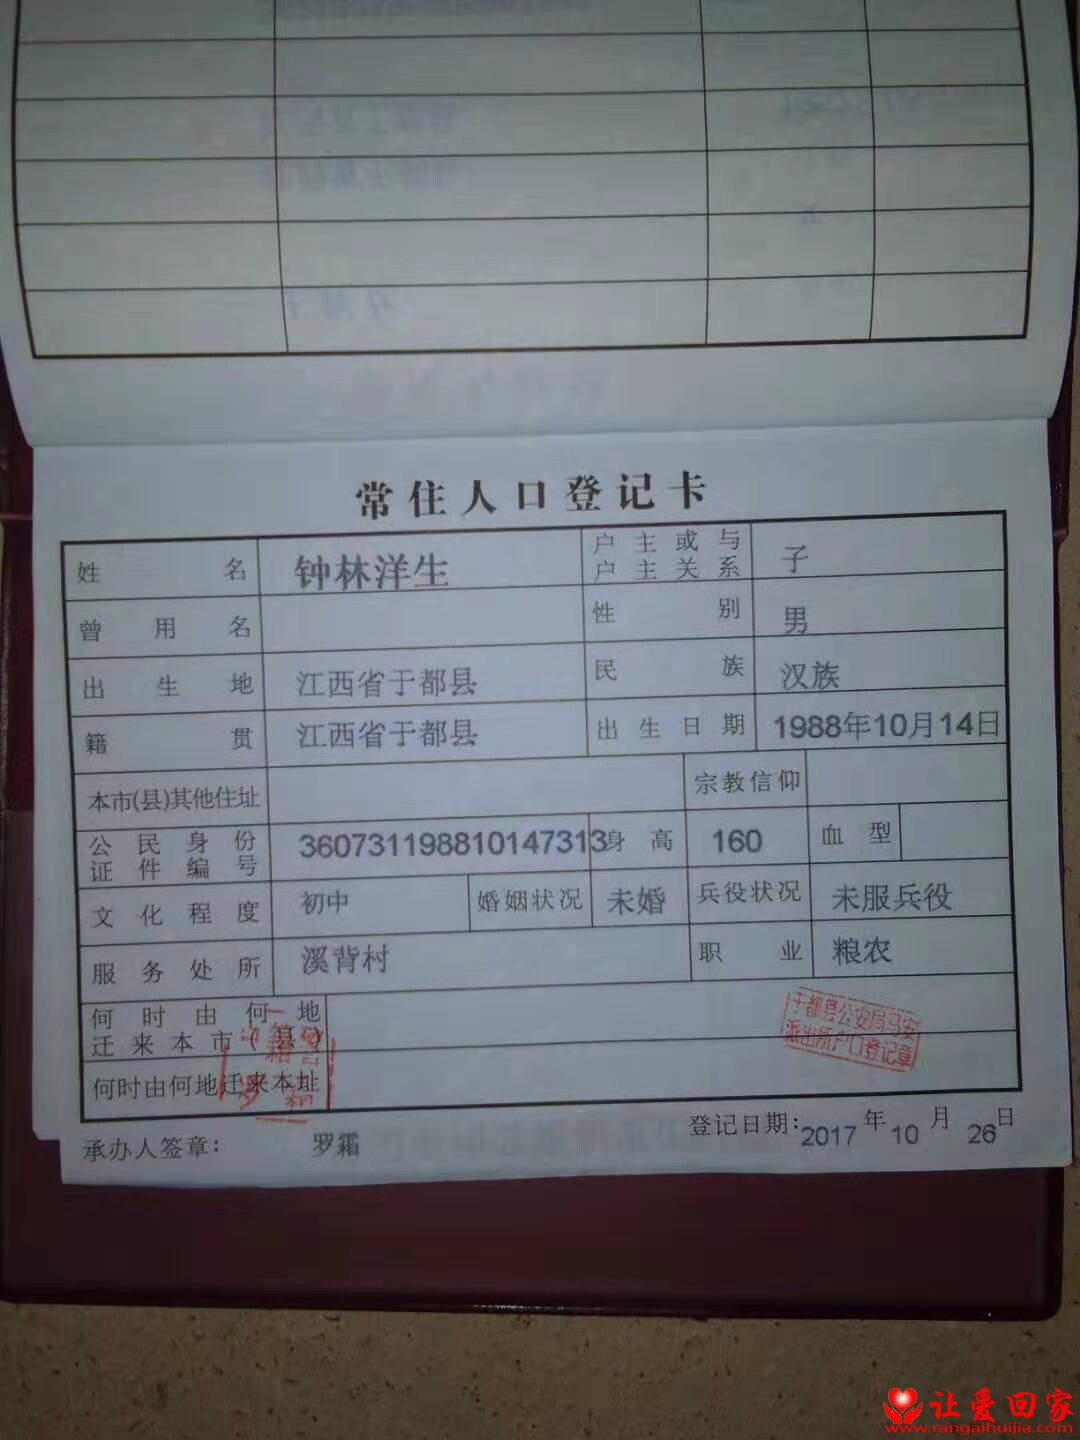 常住人口登记卡
姓名 钟林洋生 户主或与户主关系 子
曾用名 性别 男
出生地 江西省于都县 民族 汉族
籍贯 江西省于都县 出生日期 1988年10月14日
本市(县)其他住址 宗教信仰
公民身份证件编号 360731198810147313 身高 160 血型
文化程度 初中 婚姻状况 未婚 兵役状况 未服兵役
服务处所 溪背村 职业 粮农
何时由何地迁来本市(县)
于都县公安局马安
派出所户口登记章
何时由何地迁来本址
承办人签章: 罗霜 登记日期:2017年10月26日
让爱回家
www.rangaihuijia.com